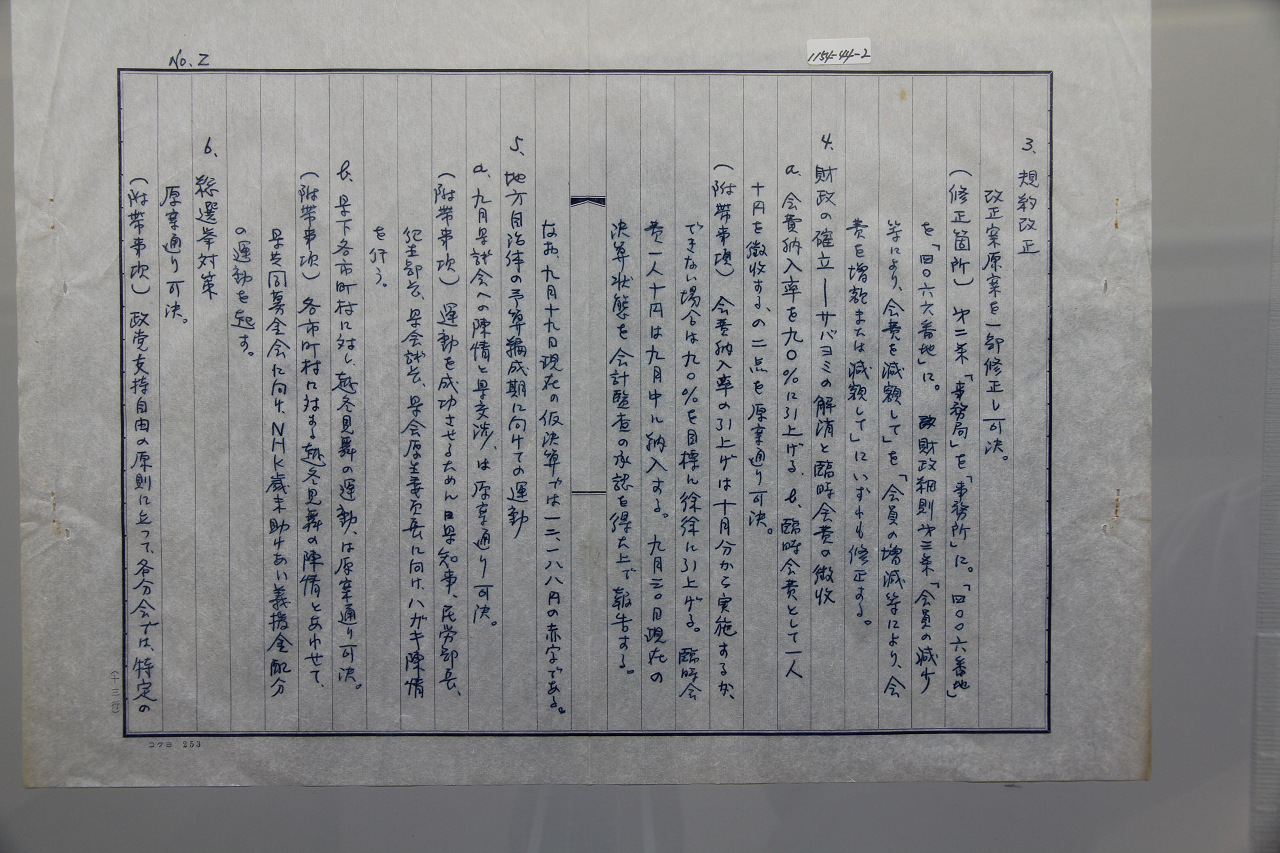 No. 2
1154-44-2
3. 規約改正
改正案原案を一部修正し可決。
(修正箇所) 第二条「事務局」を「事務所」に。「四〇〇六番地」
を「四〇六六番地」に。 財政細則第三条「会員の減少
等により、会費を減額して」を「会員の増減等により、会
費を増額または減額して」にいずれも修正する。
4. 財政の確立――サバヨミの解消と臨時会費の徴収
a. 会費納入率を九〇%に引上げる、b. 臨時会費として一人
十円を徴収する、の二点を原案通り可決。
(附帯事項) 会費納入率の引上げは十月分から実施するが、
できない場合は九〇%を目標に徐徐に引上げる。臨時会
費一人十円は九月中に納入する。九月三〇日現在の
決算状態を会計監査の承認を得た上で報告する。
なお、九月十九日現在の仮決算では一二、一八八円の赤字である。
5. 地方自治体の予算編成期に向けての運動
a. 九月県議会への陳情と県交渉、は原案通り可決。
(附帯事項) 運動を成功させるために県知事、民労部長、
衛生部長、県会議長、県会厚生委員長に向け、ハガキ陳情
を行う。
b. 県下各市町村に対し、越冬見舞の運動、は原案通り可決。
(附帯事項) 各市町村に対する越冬見舞の陳情とあわせて、
県共同募金会に向け、NHK歳末助けあい義援金配分
の運動を起す。
6. 総選挙対策
原案通り可決。
(附帯事項) 政党支持自由の原則に立って、各分会では、特定の
(十三行)
コクヨ 253